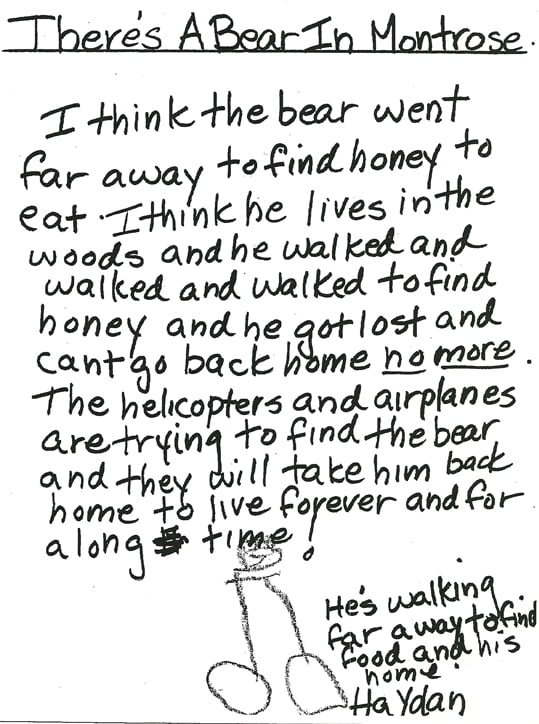 There's A Bear In Montrose.
I think the bear went
far away to find honey to
eat. I think he lives in the
woods and he walked and
walked and walked to find
honey and he got lost and
cant go back home no more.
The helicopters and airplanes
are trying to find the bear
and they will take him back
home to live forever and for
a long time!
He's walking
far away to find
food and his
home.
Haydan